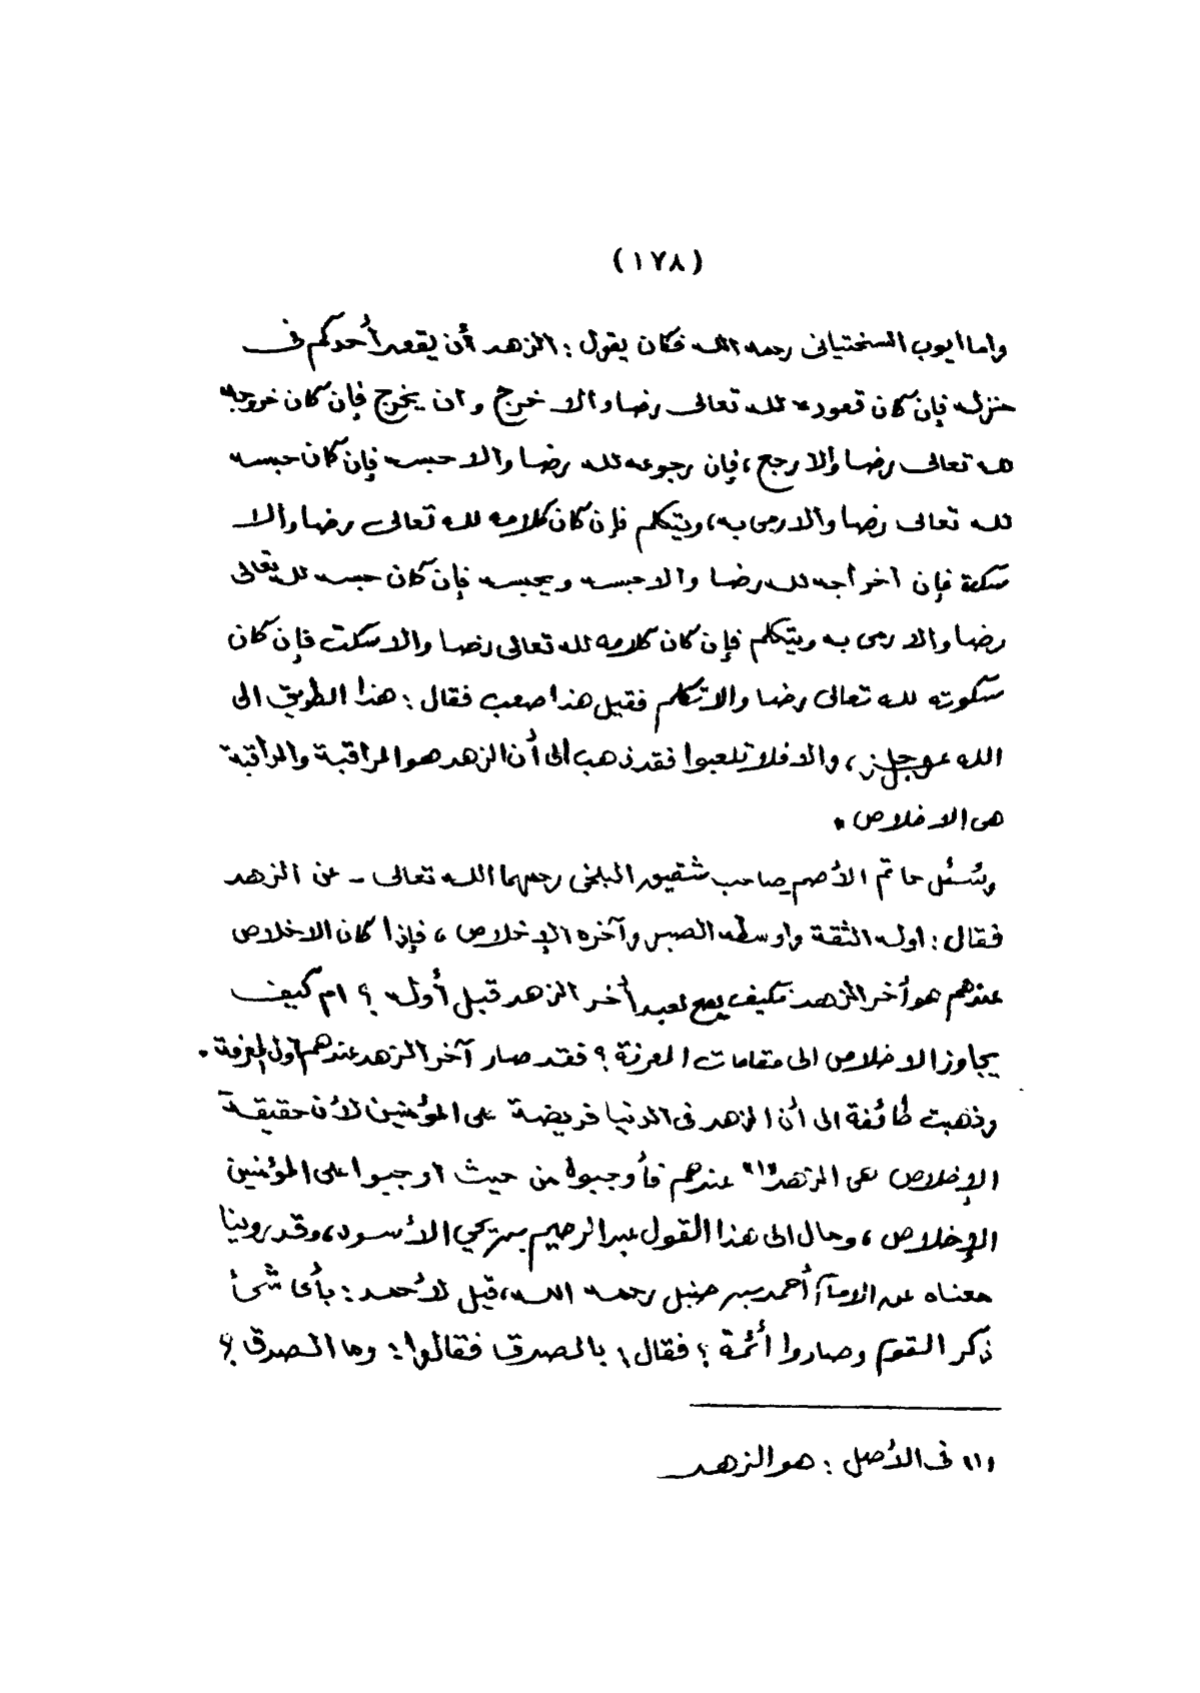 (١٧٨)
واما أيوب السختيانى رحمه الله فكان يقول : الزهد أن يقعد أحدكم فى
منزله فإن كان قعوده لله تعالى رضا والا خرج وان يخرج فإن كان خروجه
لله تعالى رضا والا رجع ، فإن رجوعه لله رضا والا حبسه فإن كان حبسه
لله تعالى رضا والا رمى به ، ويتكلم فإن كان كلامه لله تعالى رضا والا
سكت فإن اخراجه لله رضا والا حبسه ويحبسه فإن كان حبسه لله تعالى
رضا والا رمى به ويتكلم فإن كان كلامه لله تعالى رضا والا سكت فإن كان
سكوته لله تعالى رضا والا تكلم فقيل هذا صعب فقال : هذا الطريق الى
الله عز وجل ، والا فلا تلعبوا فقد ذهب الى أن الزهد هو المراقبة والمراقبة
هى الاخلاص .
وسئل حاتم الأصم صاحب شقيق البلخى رحمهما الله تعالى - عن الزهد
فقال : اوله الثقة واوسطه الصبر وآخره الإخلاص ، فإذا كان الاخلاص
عندهم هو أخر الزهد فكيف يصح لعبد أخر الزهد قبل أوله ؟ ام كيف
يجاوز الاخلاص الى مقامات المعرفة ؟ فقد صار آخر الزهد عندهم اول المعرفة .
وذهبت طائفة الى أن الزهد فى الدنيا فريضة على المؤمنين لأن حقيقة
الإخلاص هى الزهد "١" عندهم فأوجبوه من حيث اوجبوا على المؤمنين
الإخلاص ، ومال الى هذا القول عبد الرحيم بن يحي الأسود ، وقد روينا
معناه عن الامام أحمد بن حنبل رحمه الله ، قيل لأحمد : بأى شئ
ذكر القوم وصاروا أئمة ؟ فقال : بالصدق فقالوا : وما الصدق ؟
"١" فى الأصل : هو الزهد